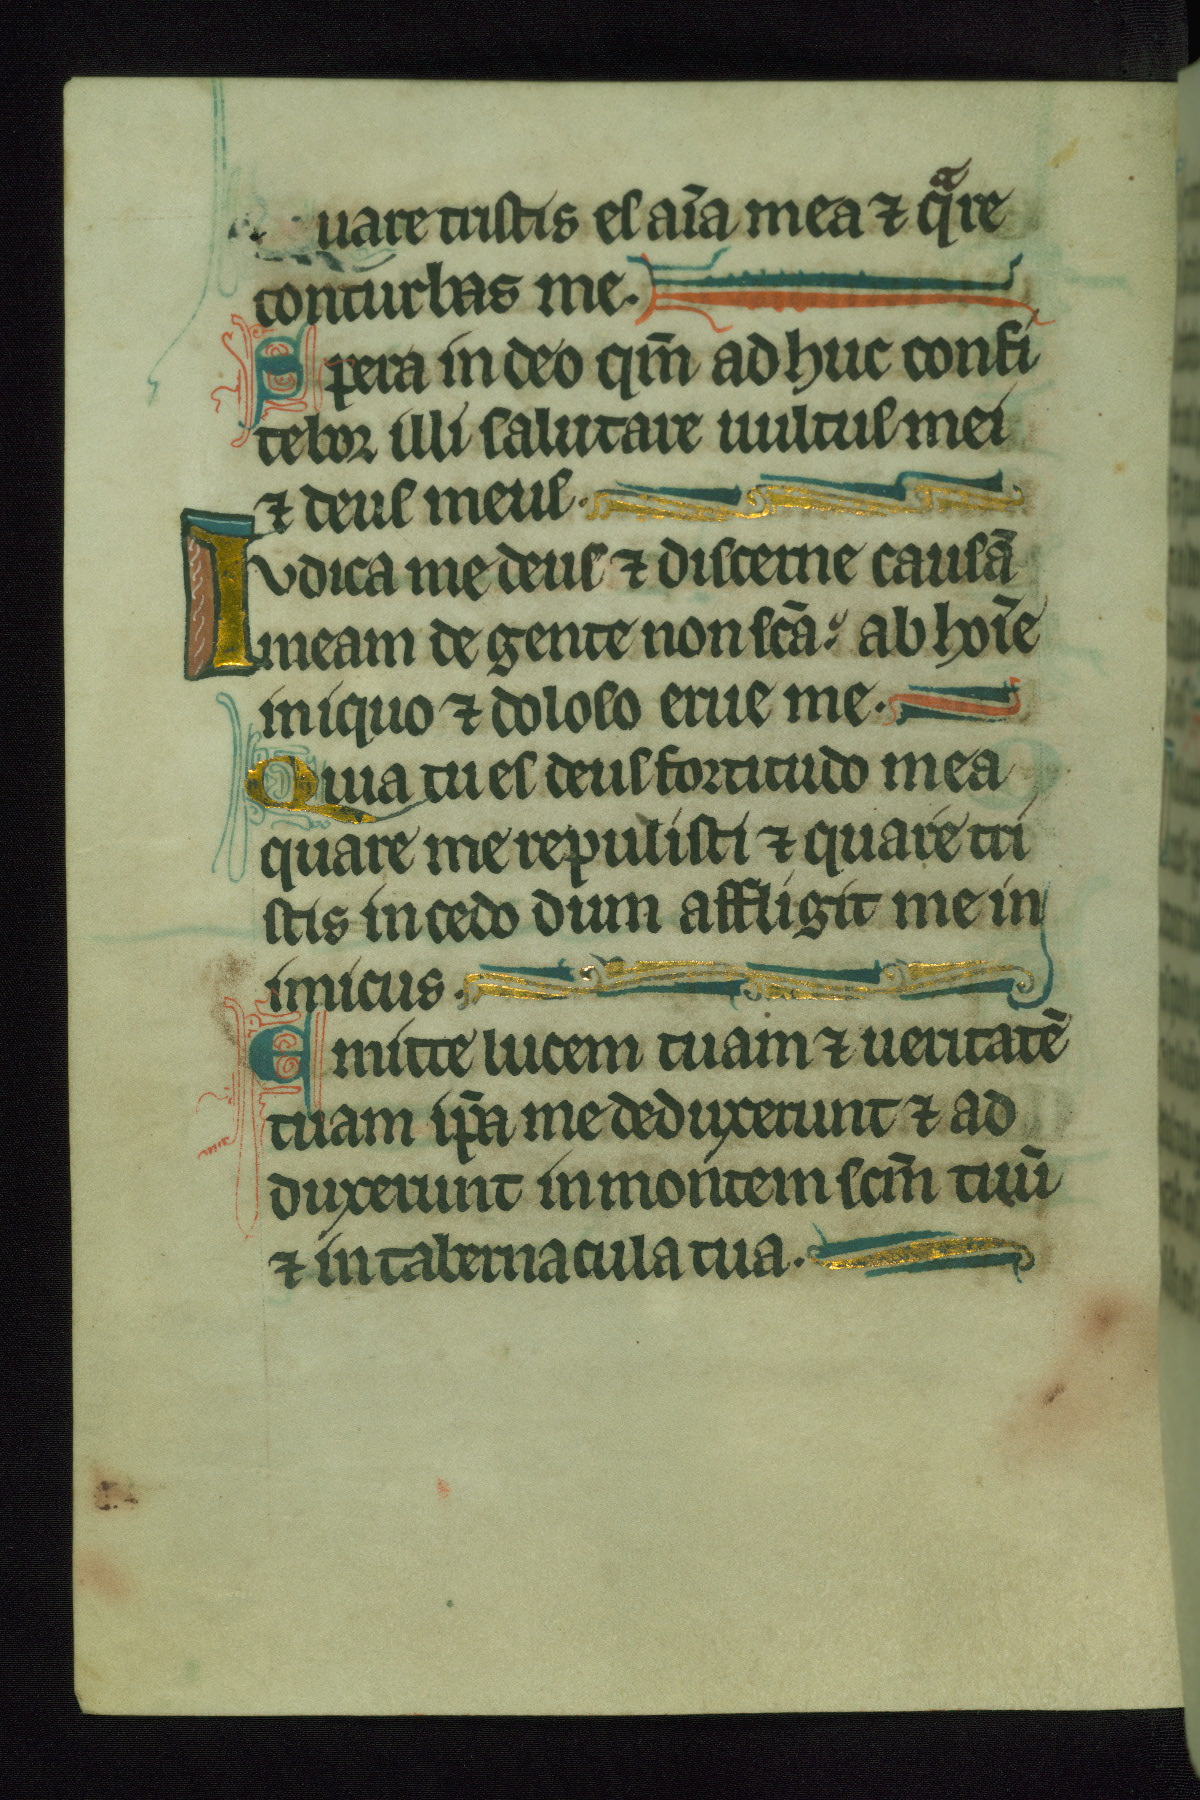 uare tristis es aīa mea ⁊ qᵃre
conturbas me.
Spera in deo qm̄ adhuc confi
tebor illi salutare uultus mei
⁊ deus meus.
Iudica me deus ⁊ discerne causā
meam de gente non scā: ab hoīe
iniquo ⁊ doloso erue me.
Quia tu es deus fortitudo mea
quare me repulisti ⁊ quare tri
stis incedo dum affligit me in
imicus.
Emitte lucem tuam ⁊ ueritatē
tuam ip̄a me deduxerunt ⁊ ad
duxerunt in montem scm̄ tuū
⁊ in tabernacula tua.